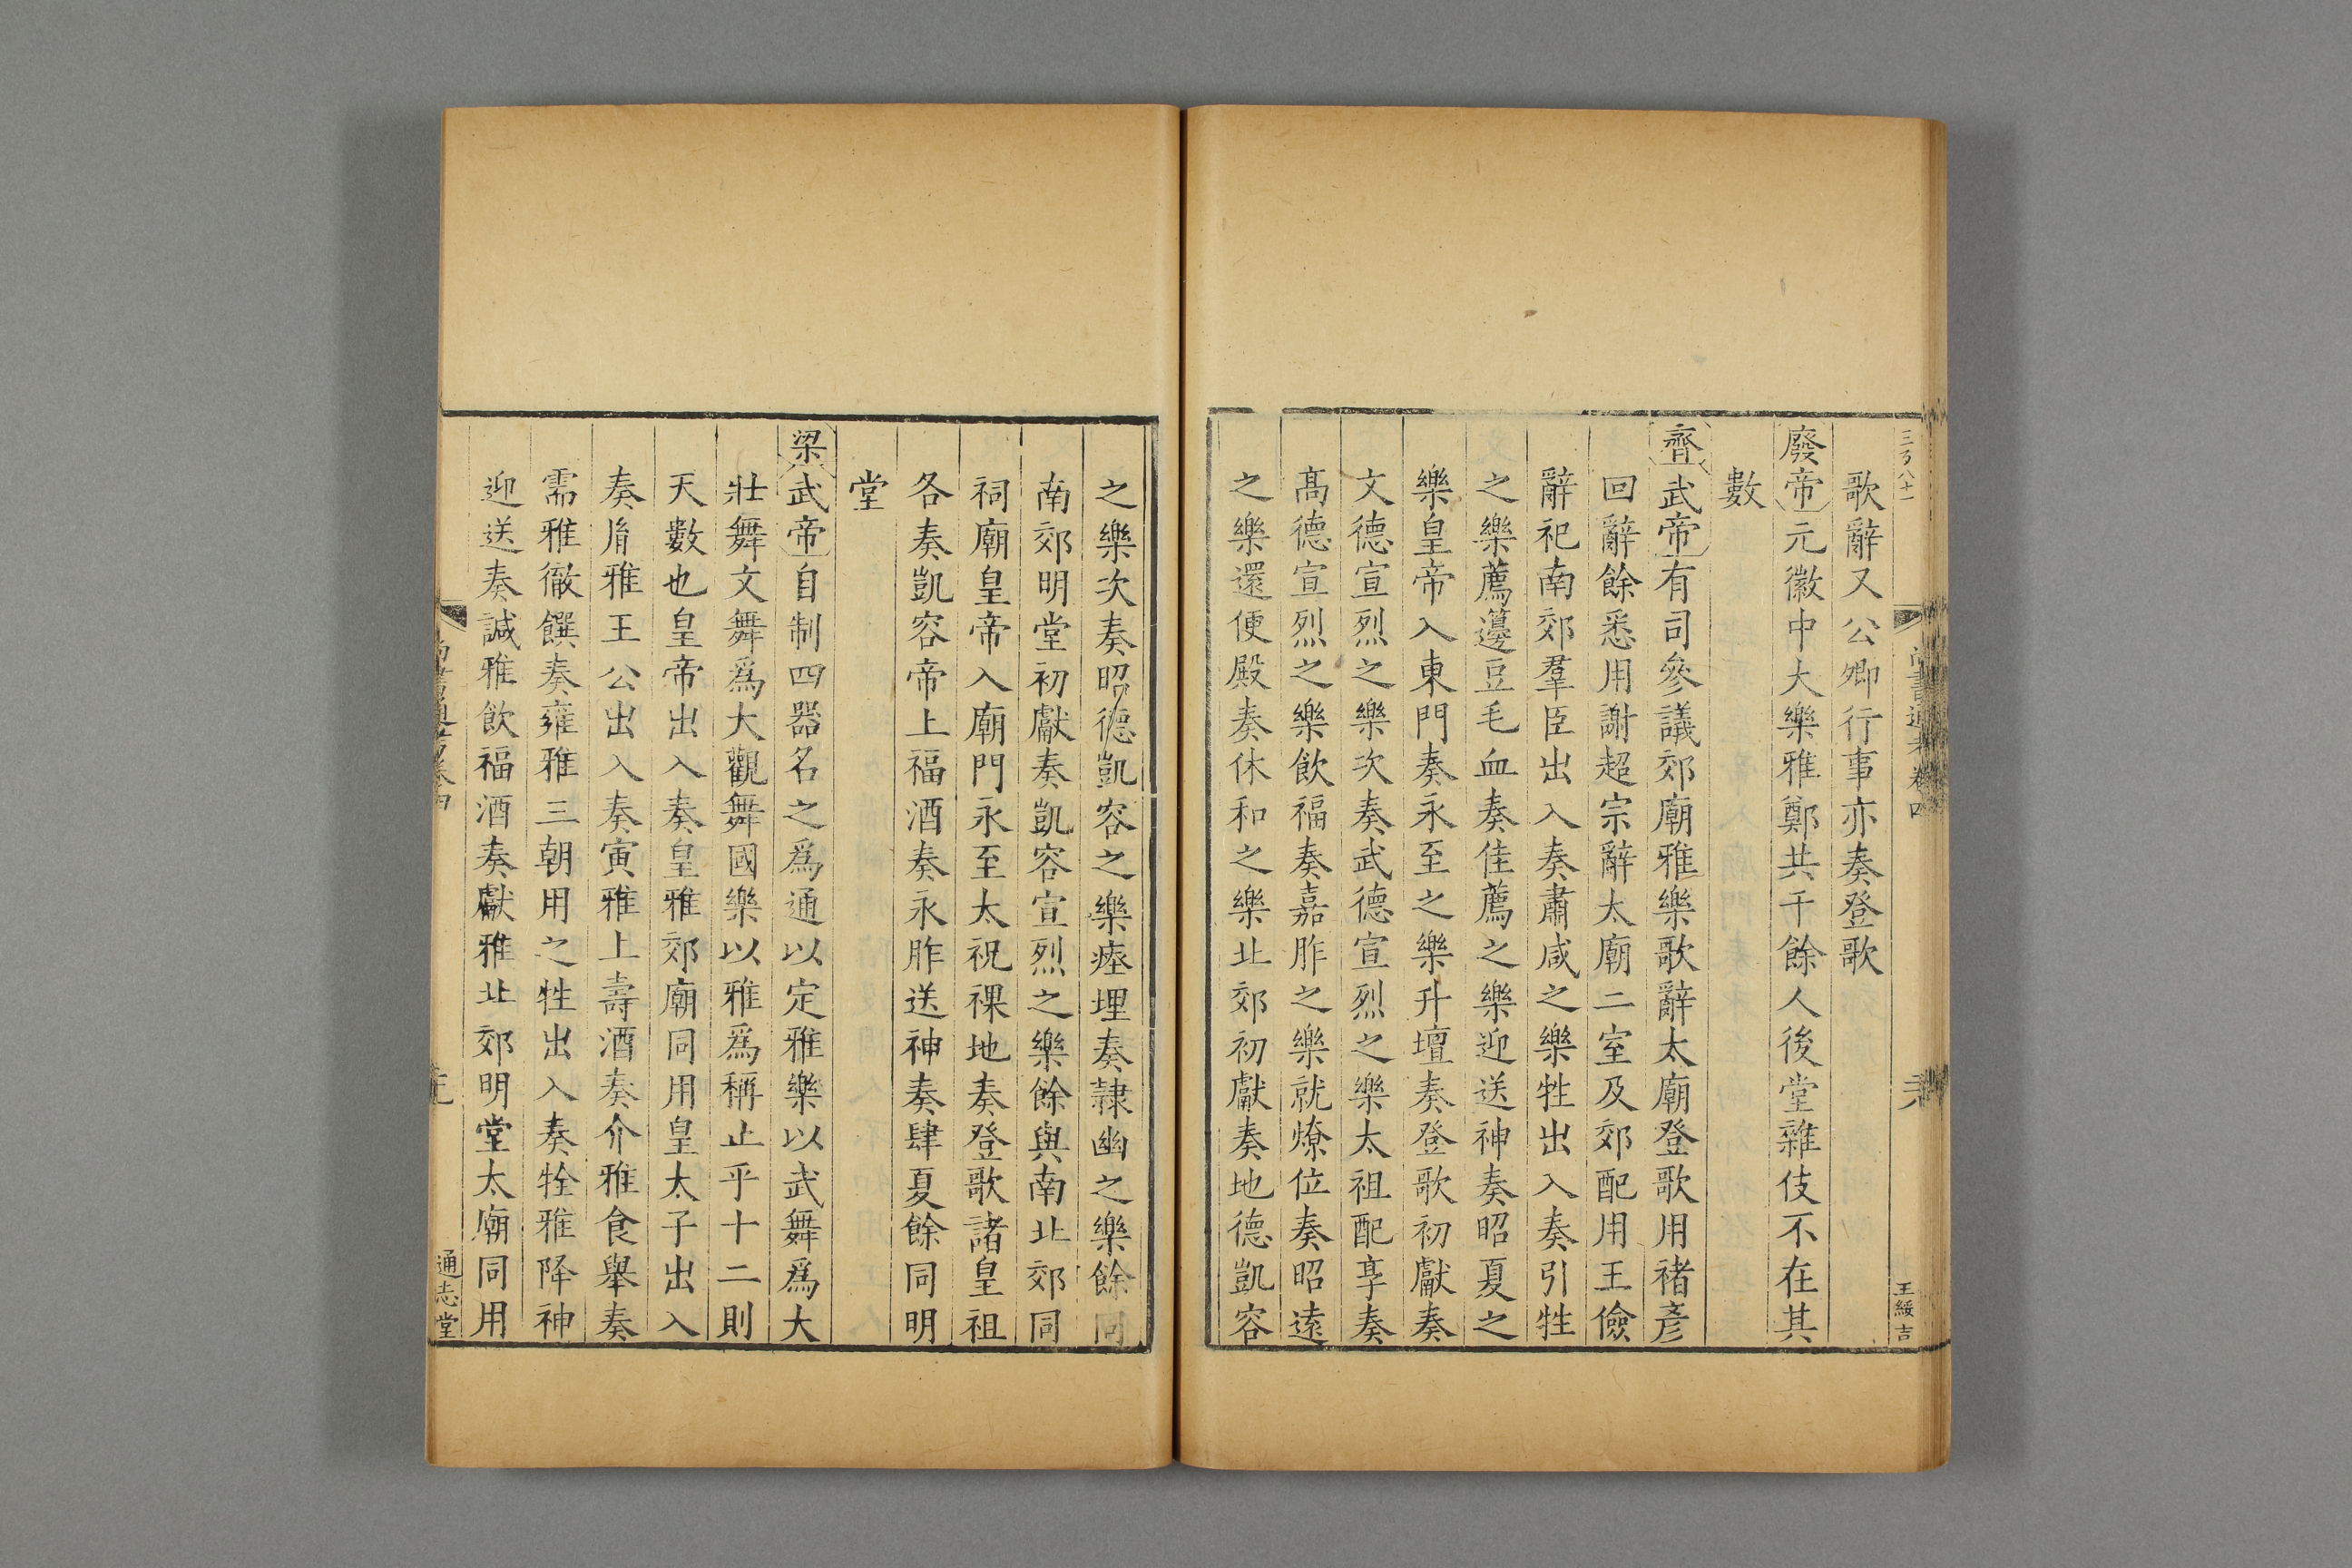 歌辭又公卿行事亦奏登歌
廢帝元徽中大樂雅鄭共千餘人後堂雜伎不在其
數
齊武帝有司參議郊廟雅樂歌辭太廟登歌用褚彥
回辭餘悉用謝超宗辭太廟二室及郊配用王儉
辭祀南郊羣臣出入奏肅咸之樂牲出入奏引牲
之樂薦籩豆毛血奏佳薦之樂迎送神奏昭夏之
樂皇帝入東門奏永至之樂升壇奏登歌初獻奏
文德宣烈之樂次奏武德宣烈之樂太祖配享奏
高德宣烈之樂飲福奏嘉胙之樂就燎位奏昭遠
之樂還便殿奏休和之樂北郊初獻奏地德凱容
王綏吉
之樂次奏昭德凱容之樂瘞埋奏隷幽之樂餘同
南郊明堂初獻奏凱容宣烈之樂餘與南北郊同
祠廟皇帝入廟門永至太祝祼地奏登歌諸皇祖
各奏凱容帝上福酒奏永胙送神奏肆夏餘同明
堂
梁武帝自制四器名之爲通以定雅樂以武舞爲大
壯舞文舞爲大觀舞國樂以雅爲稱止乎十二則
天數也皇帝出入奏皇雅郊廟同用皇太子出入
奏胤雅王公出入奏寅雅上壽酒奏介雅食舉奏
需雅徹饌奏雍雅三朝用之牲出入奏牷雅降神
迎送奏諴雅飲福酒奏獻雅北郊明堂太廟同用
通志堂